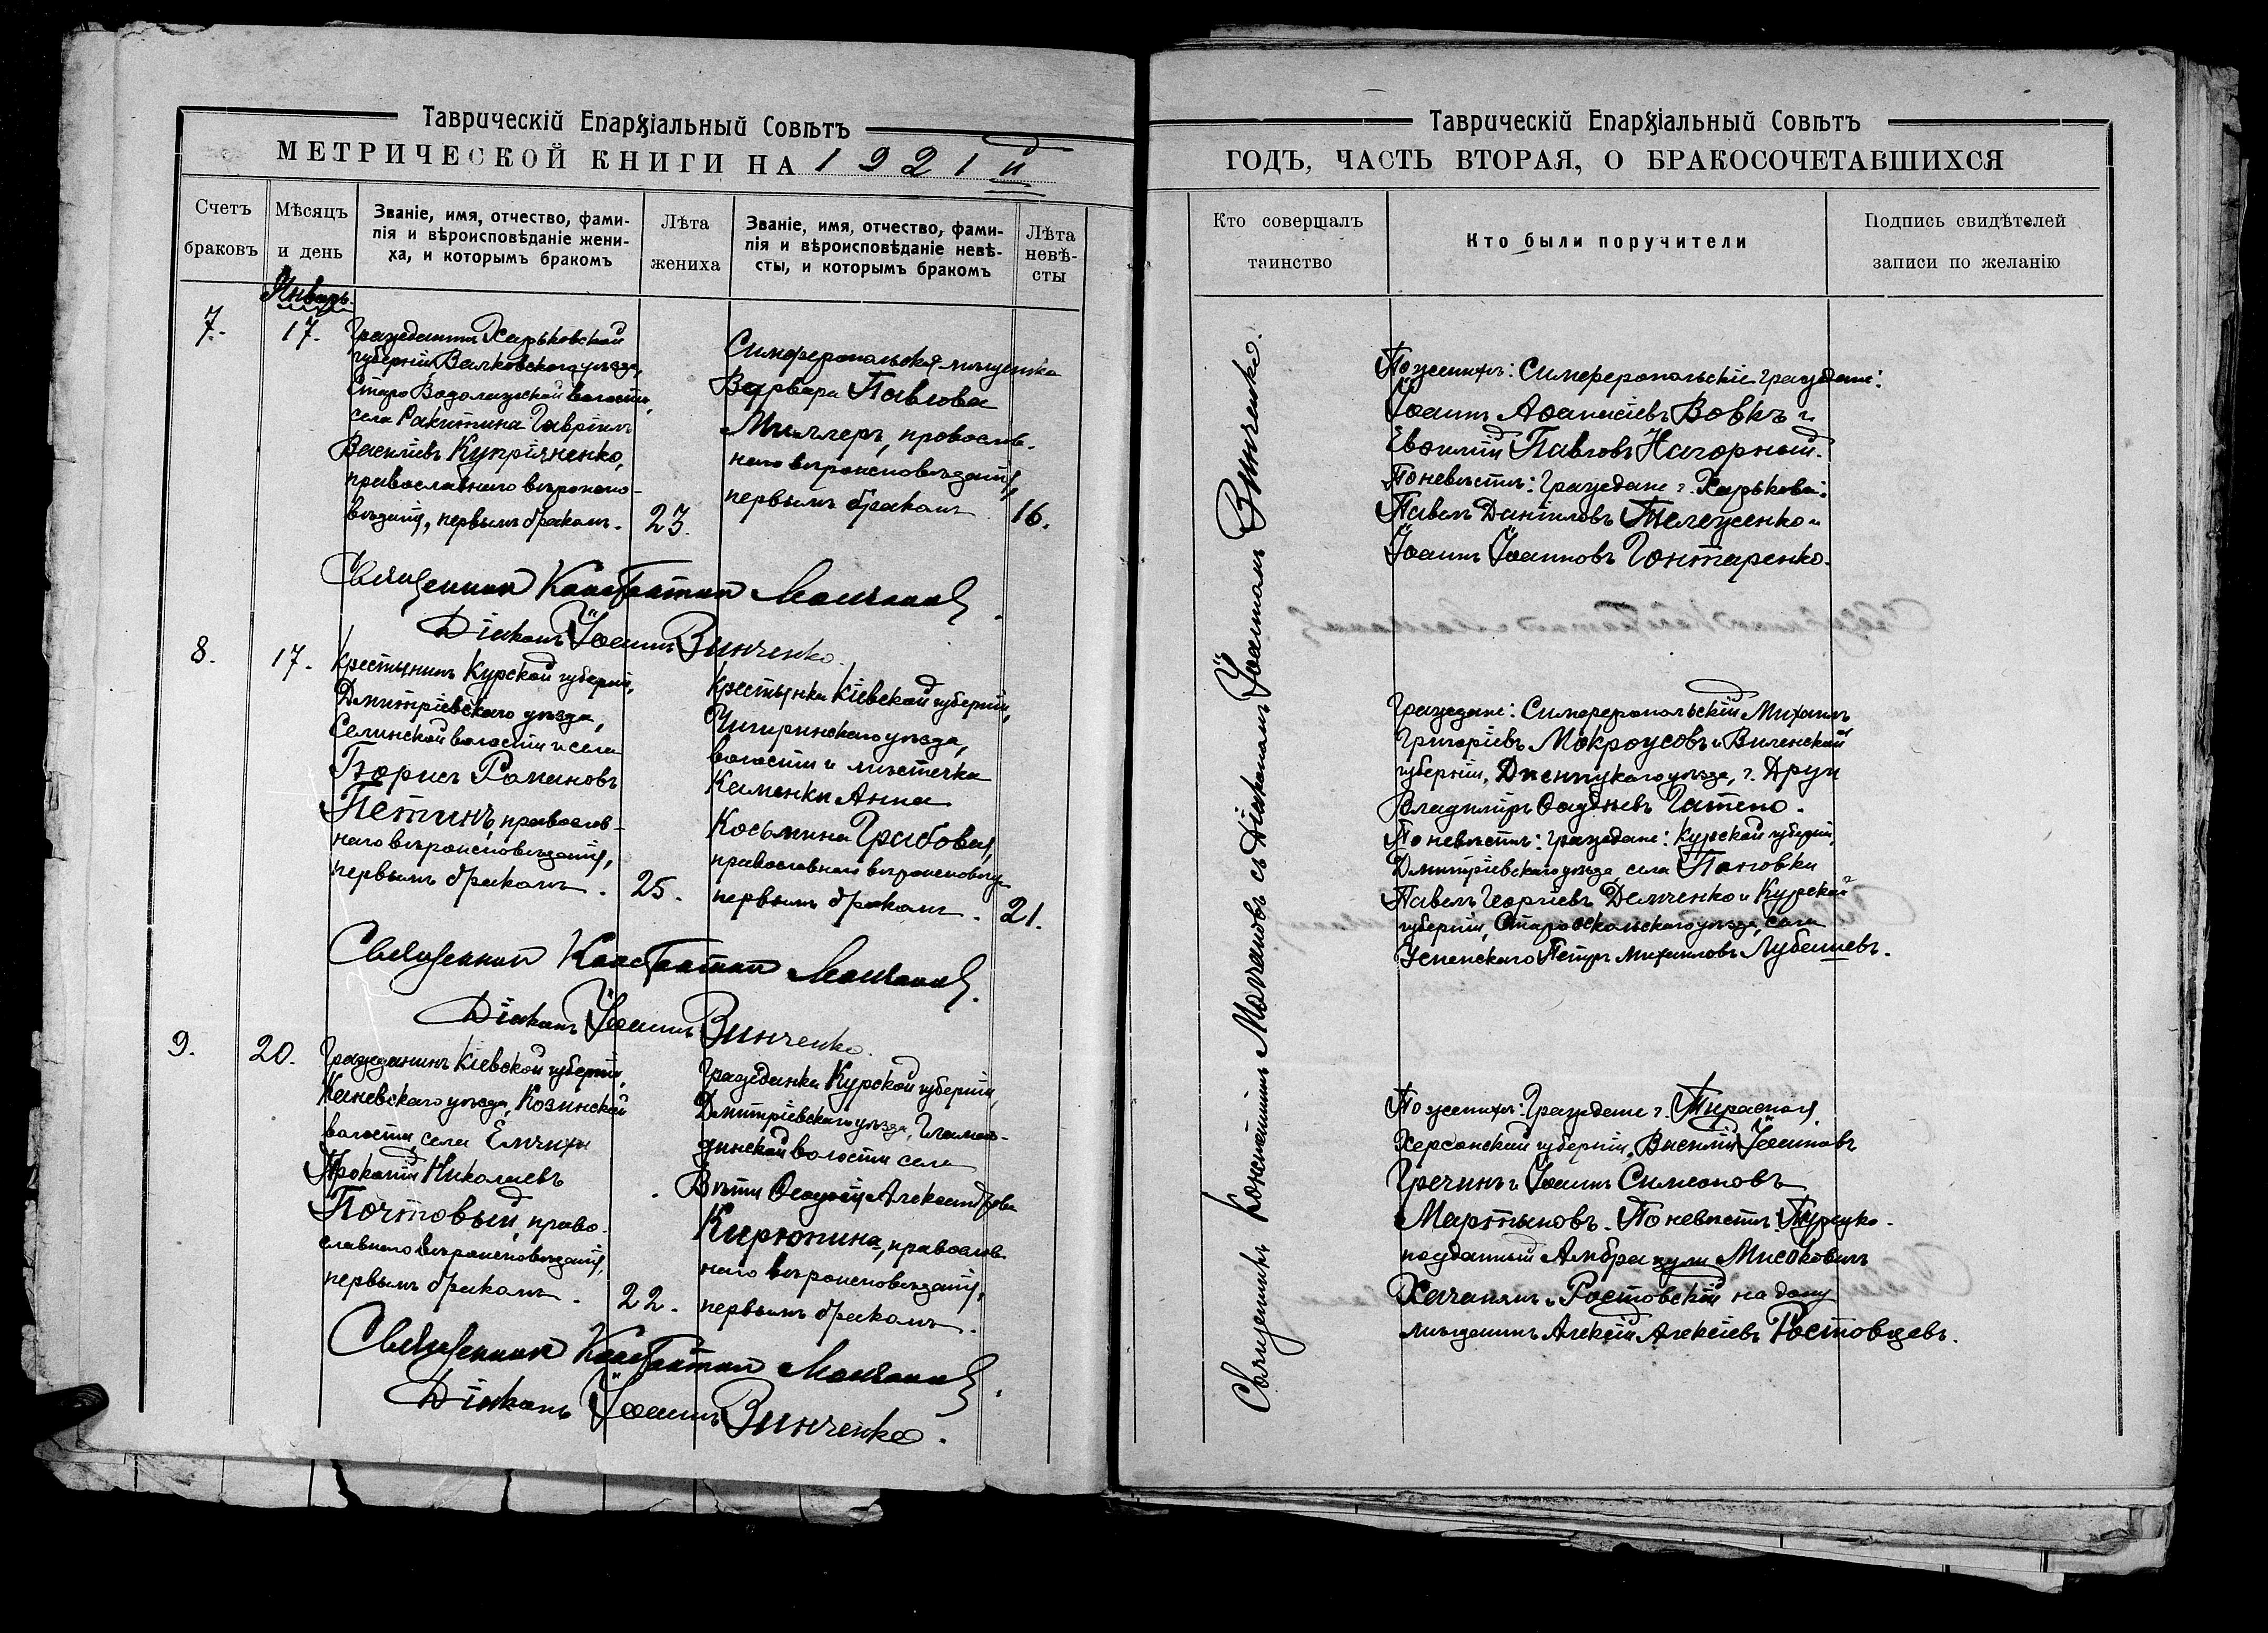 Таврическій Епархіальный Совѣтъ
МЕТРИЧЕСКОЙ КНИГИ НА 1921 й
Счетъ браковъ
Мѣсяцъ и день
Званіе, имя, отчество, фами-
лія и вѣроисповѣданіе жени-
ха, и которымъ бракомъ
Лѣта жениха
Званіе, имя, отчество, фами-
лія и вѣроисповѣданіе невѣ-
сты, и которымъ бракомъ
Лѣта невѣ-
сты
Январь.
7.
17.
Гражданинъ Харьковской
губерніи Валковскаго уѣзда,
Старо Водолажской волости,
села Ракитина Гавріилъ
Василіевъ Купріяненко,
православнаго вѣроиспо-
вѣданія, первымъ бракомъ.
23.
Симферопольская мѣщанка
Варвара Павлова
Миллеръ, православ-
наго вѣроисповѣданія,
первымъ бракомъ
16.
Священникъ Константинъ Молчановъ.
Діаконъ Іоаннъ Винченко.
8.
17.
Крестьянинъ Курской губерніи,
Дмитріевскаго уѣзда,
Селинской волости и села
Борисъ Романовъ
Петинъ, православ-
наго вѣроисповѣданія,
первымъ бракомъ.
25.
Крестьянка Кіевской губерніи,
Чигиринскаго уѣзда,
волости и мѣстечка
Каменки Анна
Косьмина Грибовая,
православнаго вѣроисповѣд
первымъ бракомъ.
21.
Священникъ Константинъ Молчановъ.
Діаконъ Іоаннъ Винченко.
9.
20.
Гражданинъ Кіевской губерніи,
Каневскаго уѣзда, Козинской
волости, села Емчихи
Прокопій Николаевъ
Почтовый, право-
славнаго вѣроисповѣданія,
первымъ бракомъ.
22.
Гражданка Курской губерніи,
Дмитріевскаго уѣзда,
волости села
Александрова
Кирюпина, православ-
наго вѣроисповѣданія,
первымъ бракомъ.
Священникъ Константинъ Молчановъ.
Діаконъ Іоаннъ Винченко.
Таврическій Епархіальный Совѣтъ
ГОДЪ, ЧАСТЬ ВТОРАЯ, О БРАКОСОЧЕТАВШИХСЯ
Кто совершалъ таинство
Кто были поручители
Подпись свидѣтелей
записи по желанію
Священникъ Константинъ Молчановъ съ Діакономъ Іоанномъ Винченко.
По женихѣ: Симферопольскіе граждане:
Іоаннъ Аѳанасіевъ Вовкъ и
Евѳимій Павловъ Нагорный.
По невѣстѣ: Граждане г. Харькова:
Павелъ Даніиловъ Тележенко и
Іоаннъ Іоанновъ Гонтаренко.
Граждане: Симферопольскій Михаилъ
Григоріевъ Мокроусовъ и Виленской
губерніи, уѣзда, г. Друи
Владиміръ Ѳаддѣевъ Гатено.
По невѣстѣ: граждане: Курской губерніи,
Дмитріевскаго уѣзда, села Поповки
Павелъ Георгіевъ Демченко и Курской
губерніи, Старооскольскаго уѣзда, села
Успенскаго Петръ Михаиловъ Лубенцевъ.
По женихѣ: Граждане г. Тирасполя,
Херсонской губерніи, Василій Іоанновъ
Гречинъ и Іоаннъ Симеоновъ
Мартыновъ. По невѣстѣ: Турецко-
подданный Мисоковичъ
Хачапянъ и Ростовскій на дону
мѣщанинъ Алексій Алексіевъ Ростовцевъ.